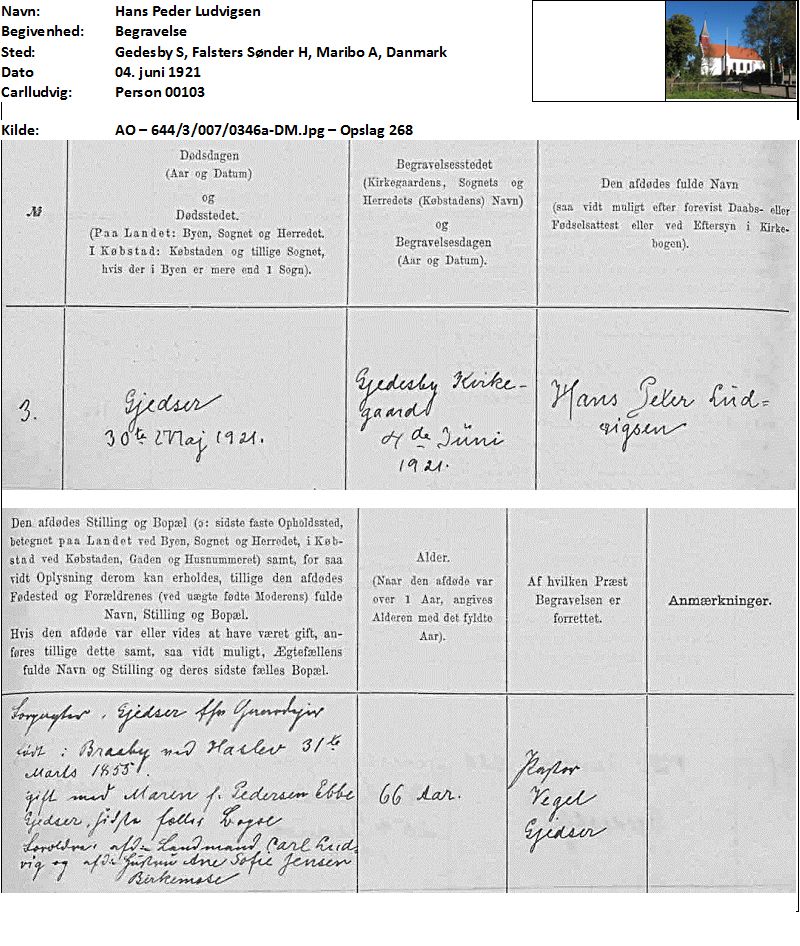 Navn: Hans Peder Ludvigsen
Begivenhed: Begravelse
Sted: Gedesby S, Falsters Sønder H, Maribo A, Danmark
Dato 04. juni 1921
Carlludvig: Person 00103
Kilde: AO – 644/3/007/0346a-DM.Jpg – Opslag 268
№
Dødsdagen
(Aar og Datum)
og
Dødsstedet.
(Paa Landet: Byen, Sognet og Herredet.
I Købstad: Købstaden og tillige Sognet,
hvis der i Byen er mere end 1 Sogn).
Begravelsesstedet
(Kirkegaardens, Sognets og
Herredets (Købstadens) Navn)
og
Begravelsesdagen
(Aar og Datum).
Den afdødes fulde Navn
(saa vidt muligt efter forevist Daabs- eller
Fødselsattest eller ved Eftersyn i Kirke-
bogen).
3.
Gjedser
30te Maj 1921.
Gjedesby Kirke-
gaard
4de Juni
1921.
Hans Peter Lud=
vigsen
Den afdødes Stilling og Bopæl (ɔ: sidste faste Opholdssted,
betegnet paa Landet ved Byen, Sognet og Herredet, i Køb-
stad ved Købstaden, Gaden og Husnummeret) samt, for saa
vidt Oplysning derom kan erholdes, tillige den afdødes
Fødested og Forældrenes (ved uægte fødte Moderens) fulde
Navn, Stilling og Bopæl.
Hvis den afdøde var eller vides at have været gift, an-
føres tillige dette samt, saa vidt muligt, Ægtefællens
fulde Navn og Stilling og deres sidste fælles Bopæl.
Alder.
(Naar den afdøde var
over 1 Aar, angives
Alderen med det fyldte
Aar).
Af hvilken Præst
Begravelsen er
forrettet.
Anmærkninger.
Gjedser
født i Braaby ved Haslev 31te
Marts 1855.
gift med Maren f. Pedersen Ebbe
Gjedser, sidste fælles Bopæl
Forældre: afd. Landmand Carl Lud-
vig og afd. Hustru Ane Sofie Jensen
Birkemose
66 Aar.
Pastor
Vegel
Gjedser